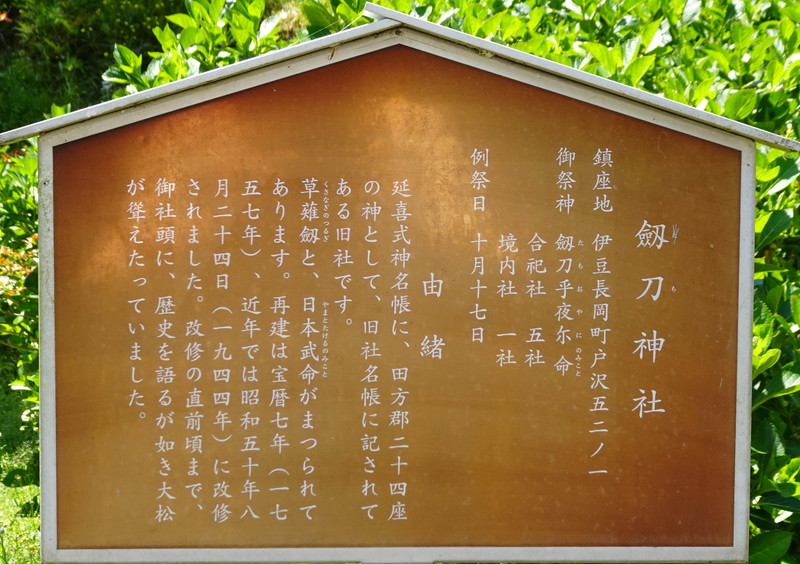 劔刀神社
鎮座地 伊豆長岡町戸沢五二ノ一
御祭神 劔刀乎夜尓命
たちおやにのみこと
合祀社 五社
境内社 一社
例祭日 十月十七日
由緒
延喜式神名帳に、田方郡二十四座
の神として、旧社名帳に記されて
ある旧社です。
草薙劔と、日本武命がまつられて
くさなぎのつるぎ
やまとたけるのみこと
あります。再建は宝暦七年（一七
五七年）、近年では昭和五十年八
月二十四日（一九四四年）に改修
されました。改修の直前頃まで、
御社頭に、歴史を語るが如き大松
が聳えたっていました。